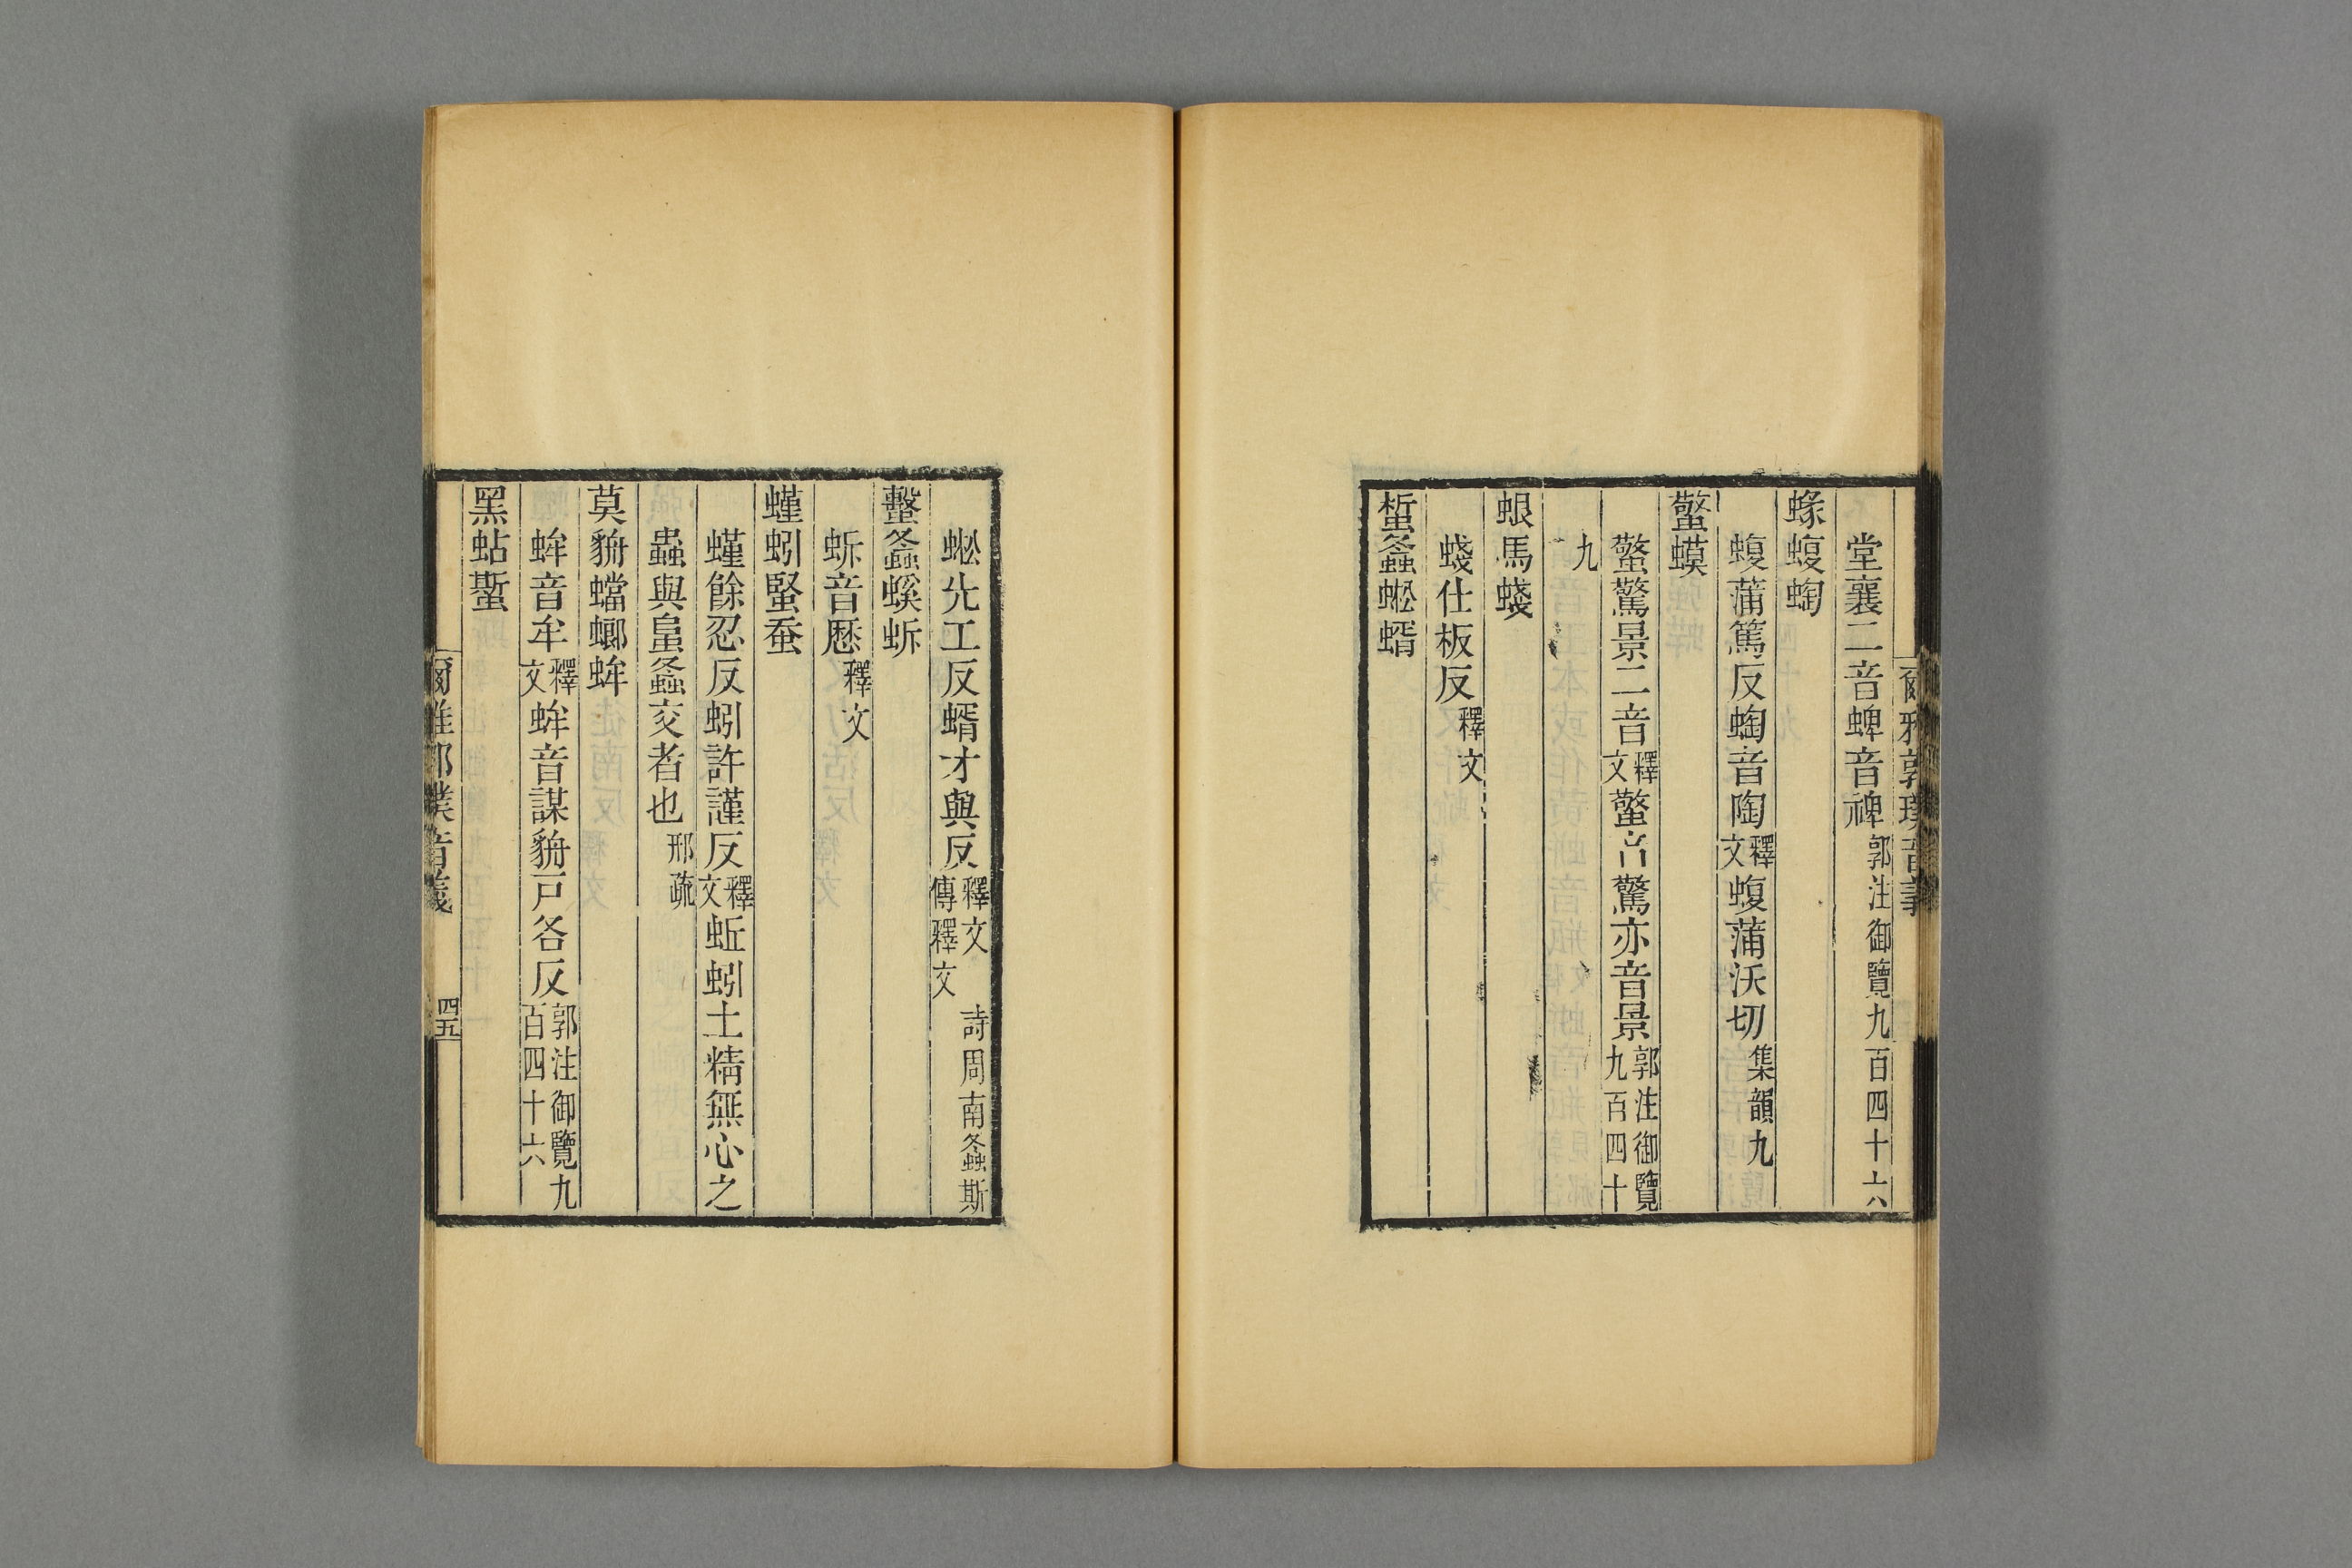 爾雅郭璞音義
堂襄二音蜱音裨郭注御覽九百四十六
蝝蝮蜪
蝮蒲篤反蜪音陶釋文蝮蒲沃切集韻九
螫蟆
螫驚景二音釋文螫音驚亦音景郭注御覽九百四十
九
蛝馬蝬
蝬仕板反釋文
蜤螽蜙蝑
蜙先工反蝑才與反釋文詩周南螽斯傳釋文
蟿螽螇蚸
蚸音歷釋文
螼蚓䘆蚕
螼餘忍反蚓許謹反釋文蚯蚓土精無心之
蟲與𧒂螽交者也邢疏
莫貈蟷蜋蛑
蛑音牟釋文蛑音謀貈戸各反郭注御覽九百四十六
黑蛅蟴
爾雅郭璞音義
四五